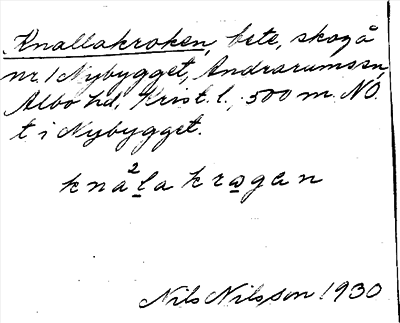 Knallakroken, bete, skog å
nr. 1 Nybygget, Andrarumssn,
Albo hd, Krist. l., 500 m. NO.
t i Nybygget.
kna²lakrogen
Nils Nilsson 1930